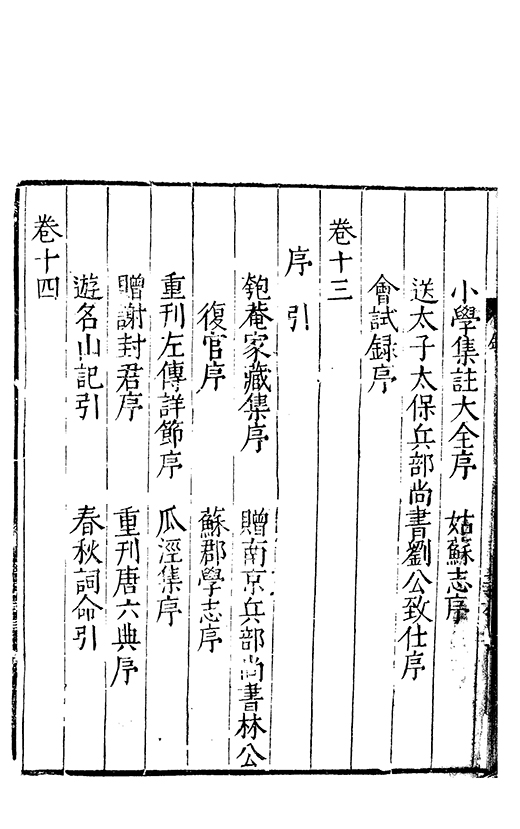 小學集註大全序　姑蘇志序
送太子太保兵部尚書劉公致仕序
會試録序
卷十三
序引
匏菴家藏集序　贈南京兵部尚書林公
復官序　蘇郡學志序
重刊左傳詳節序　瓜涇集序
贈謝封君序　重刊唐六典序
遊名山記引　春秋詞命引
卷十四